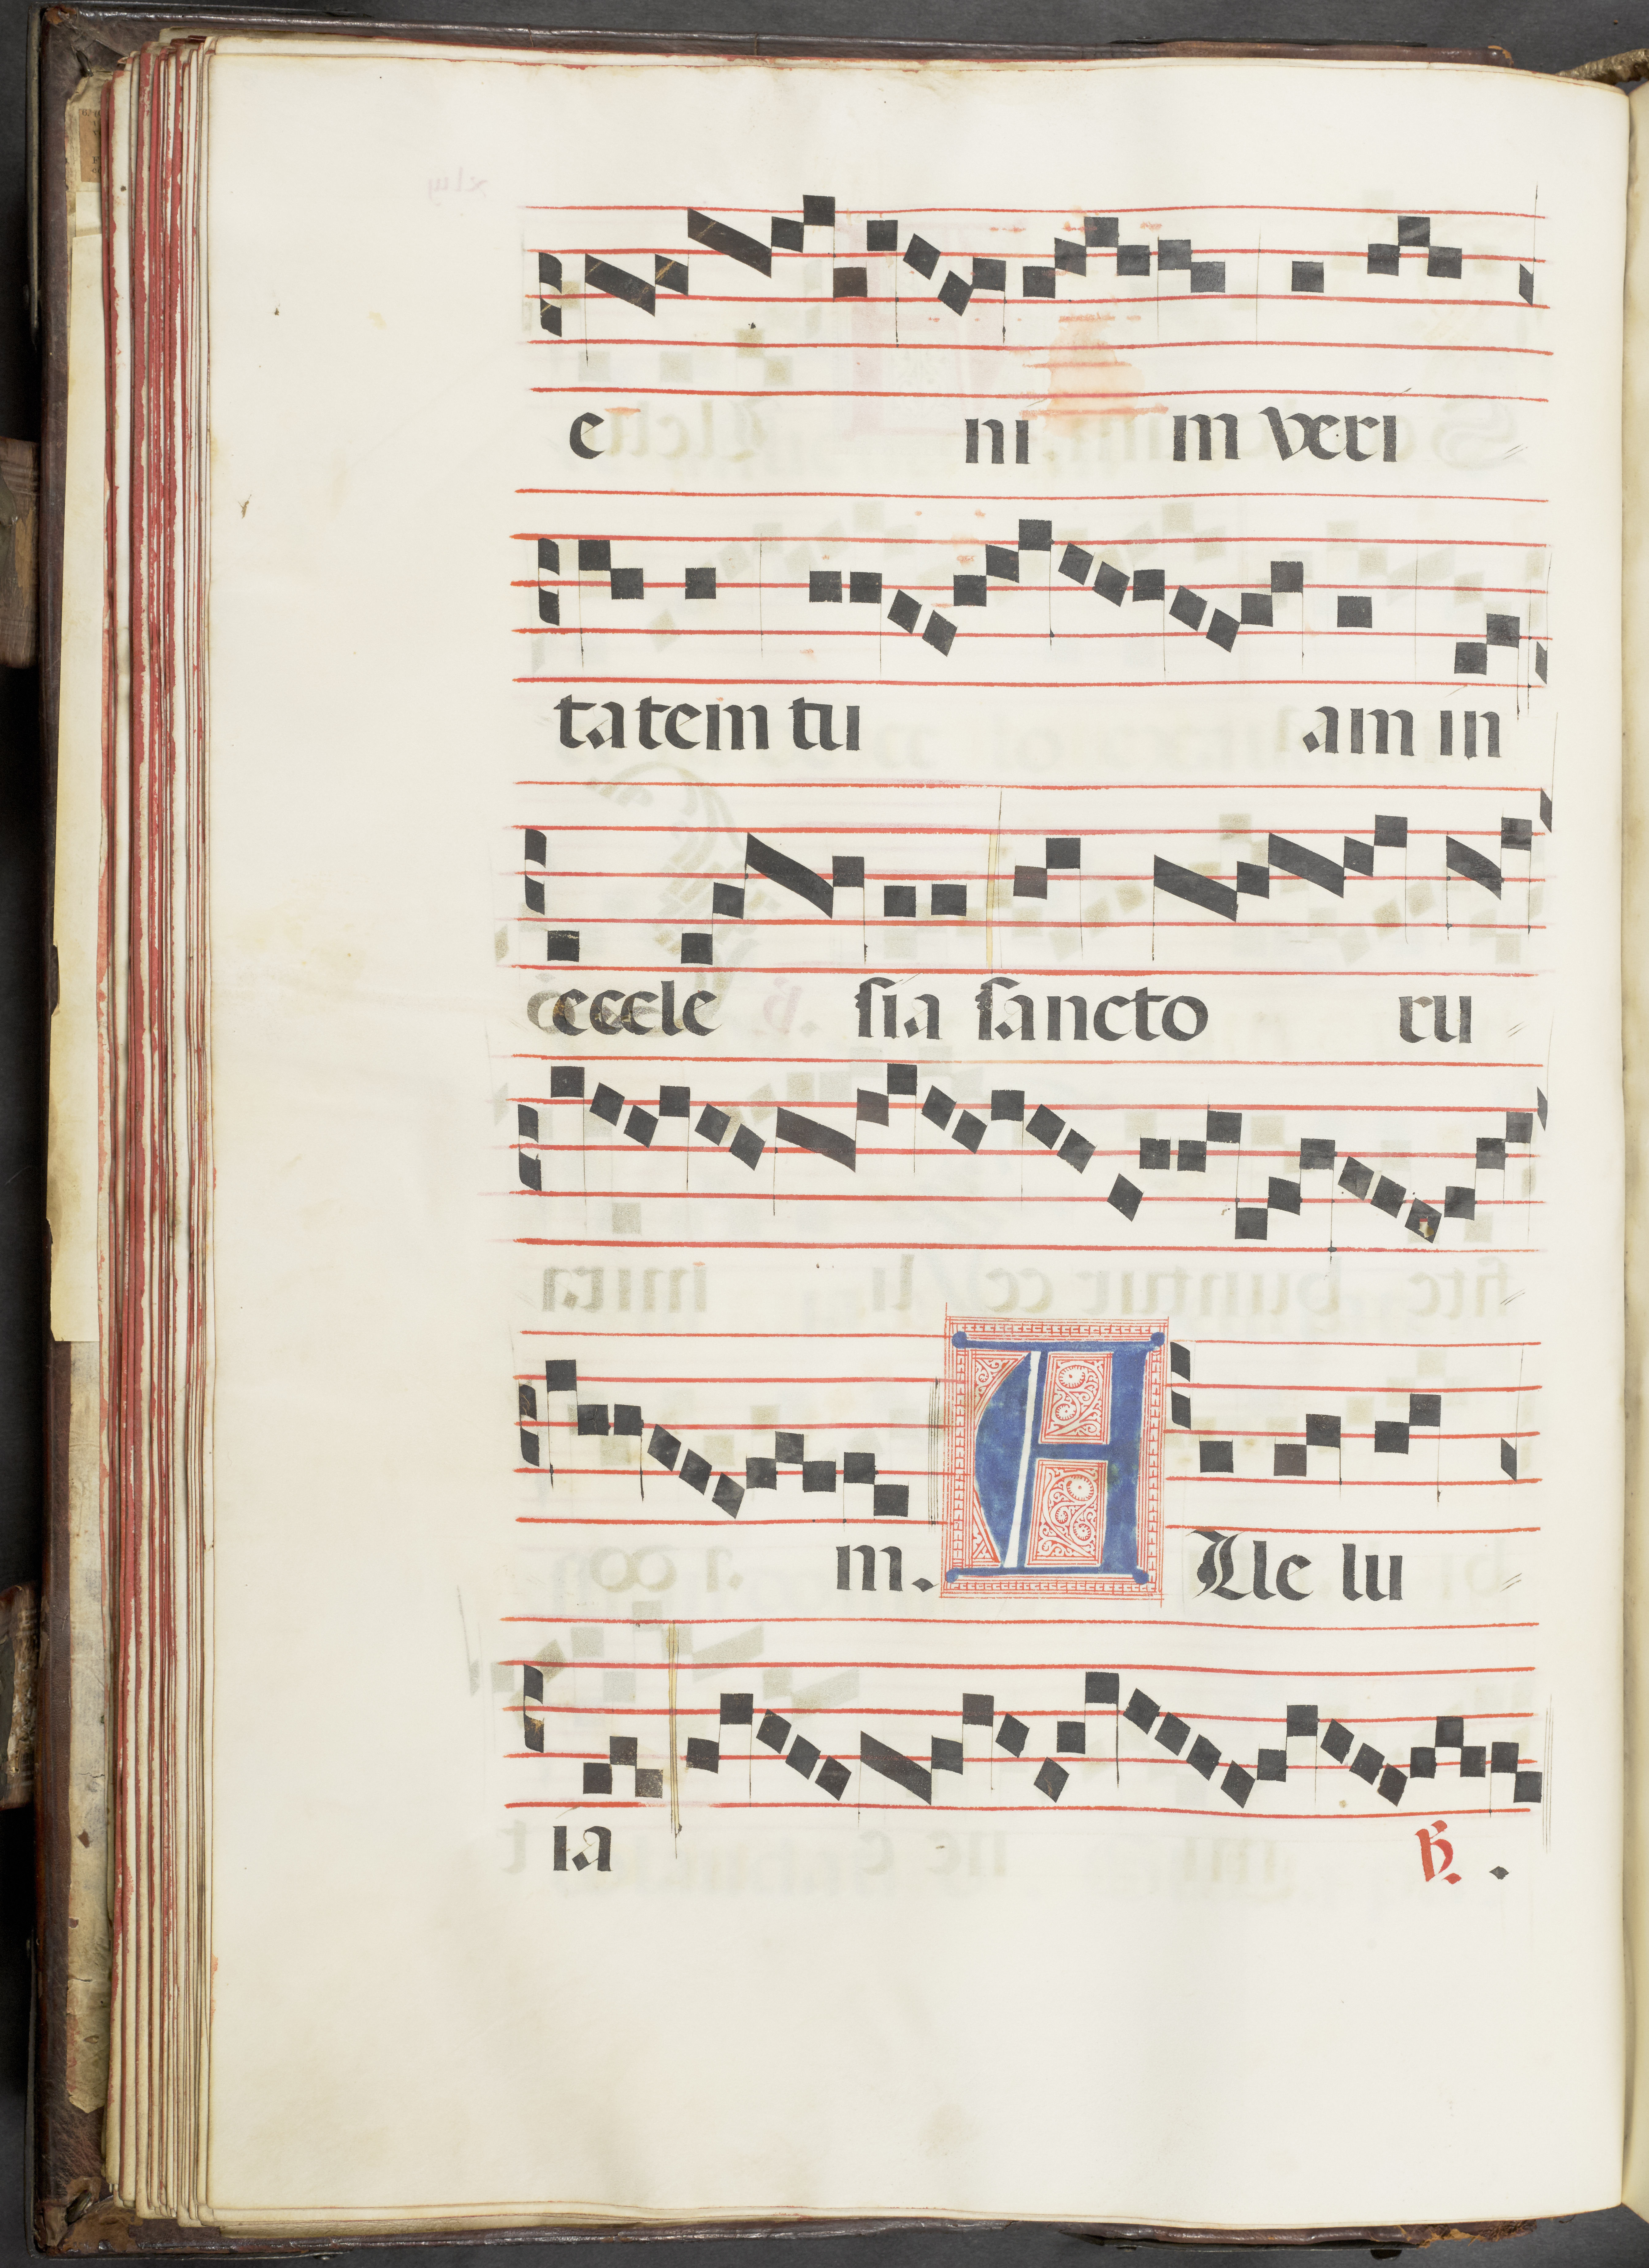 e ni m veri
tatem tu am in
eccle sia sancto ru
m. A Alle lu
ia ℟. .